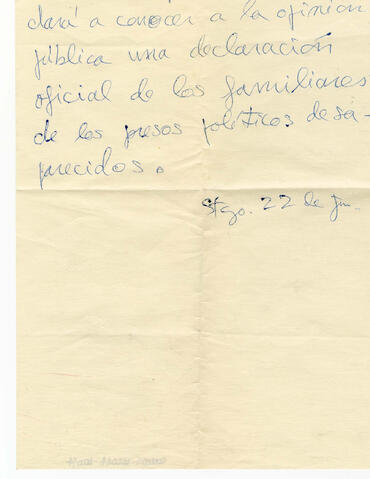 dará a conocer a la opinión
pública una declaración
oficial de los familiares
de los presos políticos desa-
parecidos.
Stgo. 22 de Jun.